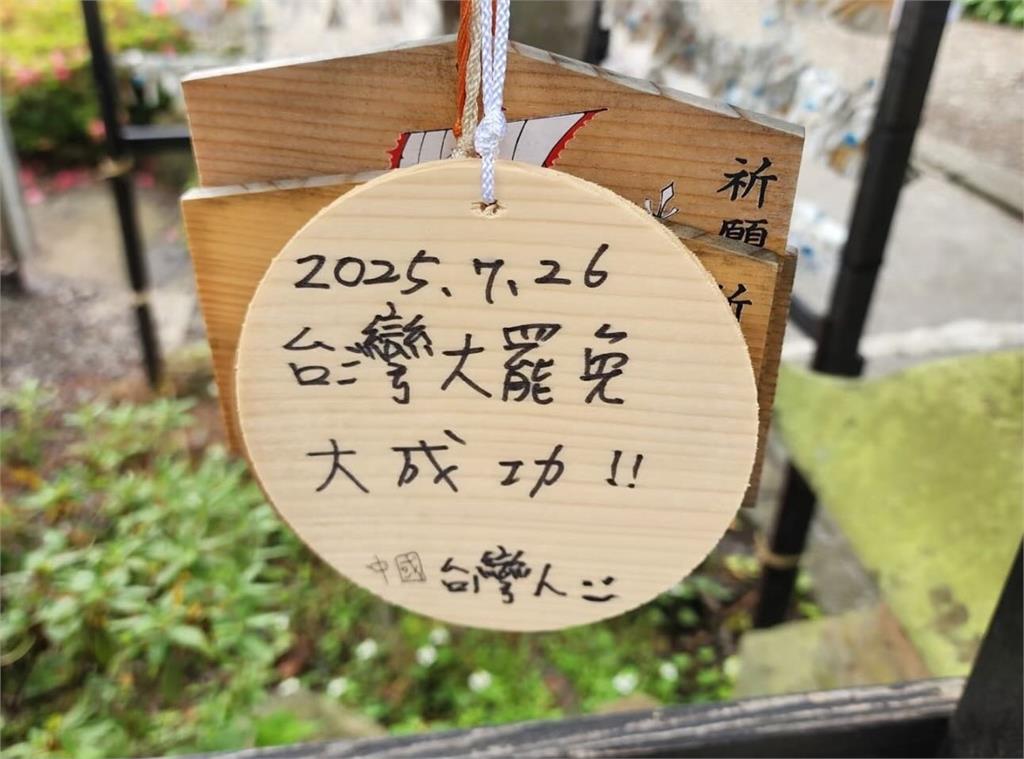 2025.7.26
台灣大罷免
大成功!!
中國 台灣人
祈願
祈